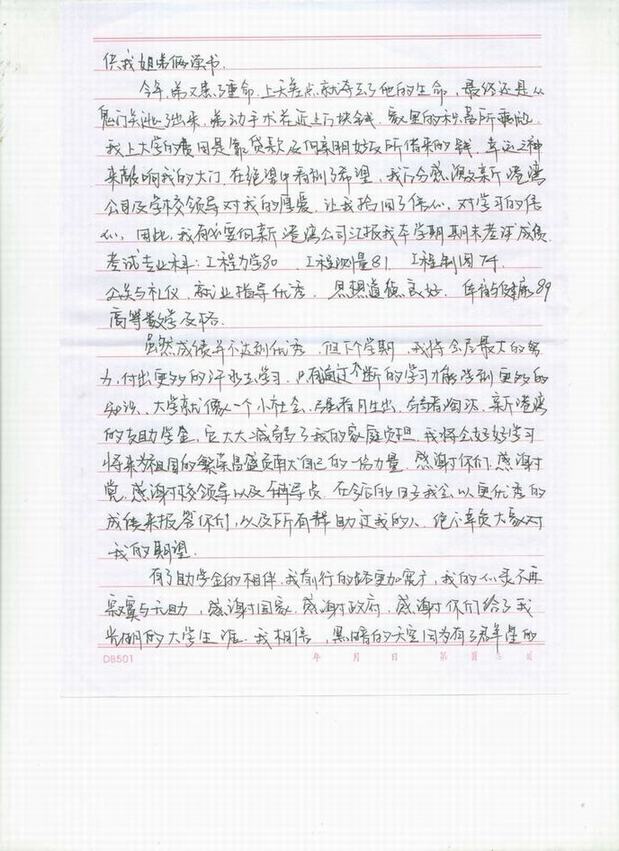 供我姐弟俩读书.
今年,弟又患了重命,上天差点就夺去了他的生命,最终还是从
鬼门关逃了出来,弟动手术花近上万块钱,家里的积蓄所剩
我上大学的费用是靠贷款及向亲朋好友所借来的钱,幸运之神
来敲响我的大门,在绝望中看到了希望,我十分感激新港湾
公司及学校领导对我的厚爱,让我拾回了信心,对学习的信
心,因此,我有必要向新港湾公司汇报我本学期期末考试成绩.
考试专业科:工程力学80 工程测量81 工程制图74.
公关与礼仪,就业指导优秀,思想道德良好,体育与健康89
高等数学及格.
虽然成绩并不达到优秀,但下个学期,我将会尽最大的努
力,付出更多的汗水去学习,只有通过不断的学习才能学到更多的
知识、大学就像一个小社会,强者生出,弱者淘汰,新港湾
的支助学金,它大大减弱了我的家庭负担,我将会好好学习
将来为祖国的繁荣昌盛贡献自己的一份力量,感谢你们,感谢
党,感谢校领导以及辅导员,在今后的日子我会以更优秀的
成绩来报答你们,以及所有帮助过我的人,绝不辜负大家对
我的期望.
有了助学金的相伴,我前行的路更加宽广,我的心灵不再
寂寞与无助,感谢国家,感谢政府,感谢你们给了我
光明的大学生涯.我相信,黑暗的天空因为有了星的
D8501 年 月 日 第 页 共 页